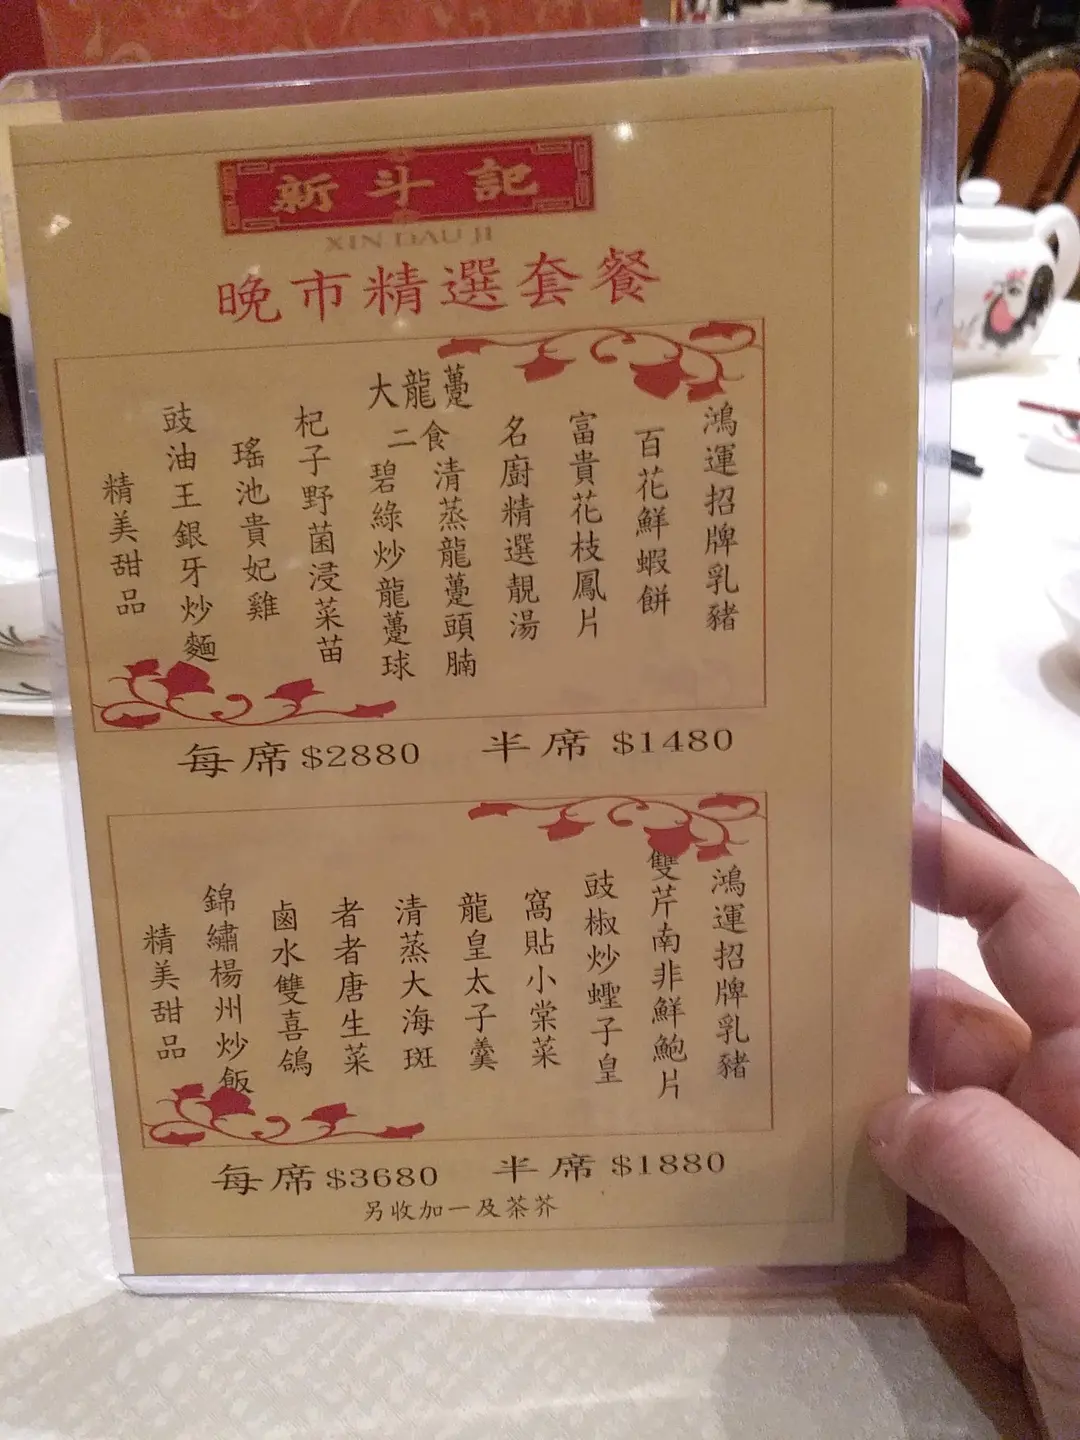 新斗記
XIN DAU JI
晚市精選套餐
鴻運招牌乳豬
百花鮮蝦餅
富貴花枝鳳片
名廚精選靚湯
大龍躉
二食
清蒸龍躉頭腩
碧綠炒龍躉球
杞子野菌浸菜苗
瑤池貴妃雞
豉油王銀牙炒麵
精美甜品
每席$2880 半席 $1480
鴻運招牌乳豬
雙芹南非鮮鮑片
豉椒炒蟶子皇
窩貼小棠菜
龍皇太子羹
清蒸大海斑
者者唐生菜
鹵水雙喜鴿
錦繡楊州炒飯
精美甜品
每席$3680 半席 $1880
另收加一及茶芥